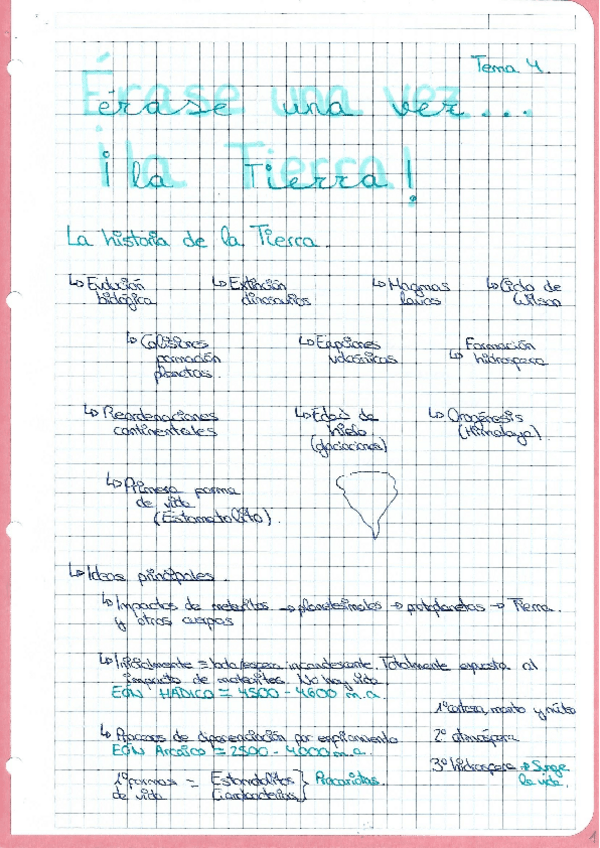 Tema 4.
érase una vez...
¡la Tierra!
La historia de la Tierra.
↳ Evolución biológica
↳ Extinción dinosaurios
↳ Magmas lavas
↳ Ciclo de Wilson
↳ Colisiones formación planetas.
↳ Erupciones volcánicas
↳ Formación hidrosfera
↳ Reordenaciones continentales
↳ Edad de hielo (glaciaciones)
↳ Orogénesis (Himalaya)
↳ Primera forma de vida (Estomatolito).
↳ Ideas principales.
↳ Impactos de meteoritos → planetesimales → protoplanetas → Tierra.
y otros cuerpos
↳ Inicialmente = bola/esfera incandescente. Totalmente expuesta al
impacto de meteoritos. No hay vida.
EÓN HÁDICO = 4500 - 4600 m.a.
1º corteza, manto y núcleo
↳ Procesos de diferenciación por enfriamiento
2º atmósfera
EÓN Arcaico = 2500 - 4000 m.a.
3º hidrosfera → Surge la vida.
1º formas de vida = Estomatolitos } Procariotas.
Cianobacterias
1